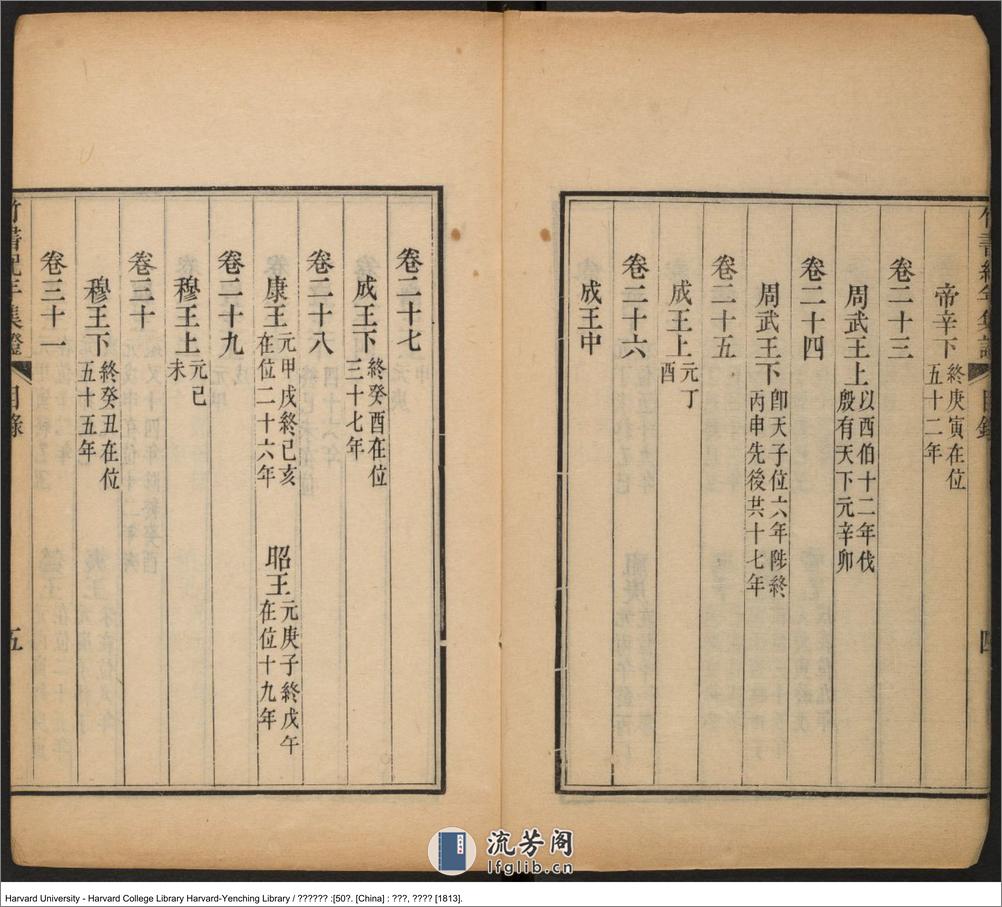 帝辛下 終庚寅在位五十二年
卷二十三
周武王上 以西伯十二年伐殷有天下元辛卯
卷二十四
周武王下 卽天子位六年陟終丙申先後共十七年
卷二十五
成王上 元丁酉
卷二十六
成王中
卷二十七
成王下 終癸酉在位三十七年
卷二十八
康王 元甲戌終己亥在位二十六年 昭王 元庚子終戊午在位十九年
卷二十九
穆王上 元己未
卷三十
穆王下 終癸丑在位五十五年
卷三十一
竹書紀年集證 目錄 五
流芳阁
lfglib.cn
Harvard University - Harvard College Library Harvard-Yenching Library / ?????? :[50?. [China] : ???, ???? [1813].